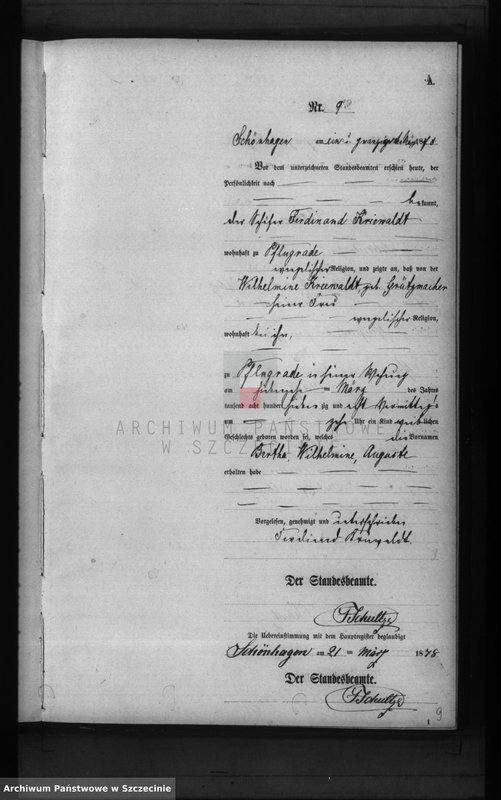 A.
Nr. 9
Schönhagen am ein u. zwanzigsten März 1878
Vor dem unterzeichneten Standesbeamten erschien heute, der
Persönlichkeit nach
bekannt,
der Schäfer Ferdinand Kriewaldt
wohnhaft zu Pflugrade
evangelischer Religion, und zeigte an, daß von der
Wilhelmine Kriewaldt geb. Grützmacher
seiner Frau
evangelischer Religion,
wohnhaft bei ihm,
zu Pflugrade in seiner Wohnung
am März des Jahres
tausend acht hundert siebenzig und acht Vormittags
um zehn Uhr ein Kind weiblichen
Geschlechts geboren worden sei, welches die Vornamen
Bertha, Wilhelmine, Auguste
erhalten habe
Vorgelesen, genehmigt und unterschrieben
Der Standesbeamte.
FSchultze
Die Uebereinstimmung mit dem Hauptregister beglaubigt
Schönhagen am 21 ten März 1878
Der Standesbeamte.
FSchultze
9
ARCHIWUM PAŃSTWOWE
W SZCZECINIE
Archiwum Państwowe w Szczecinie